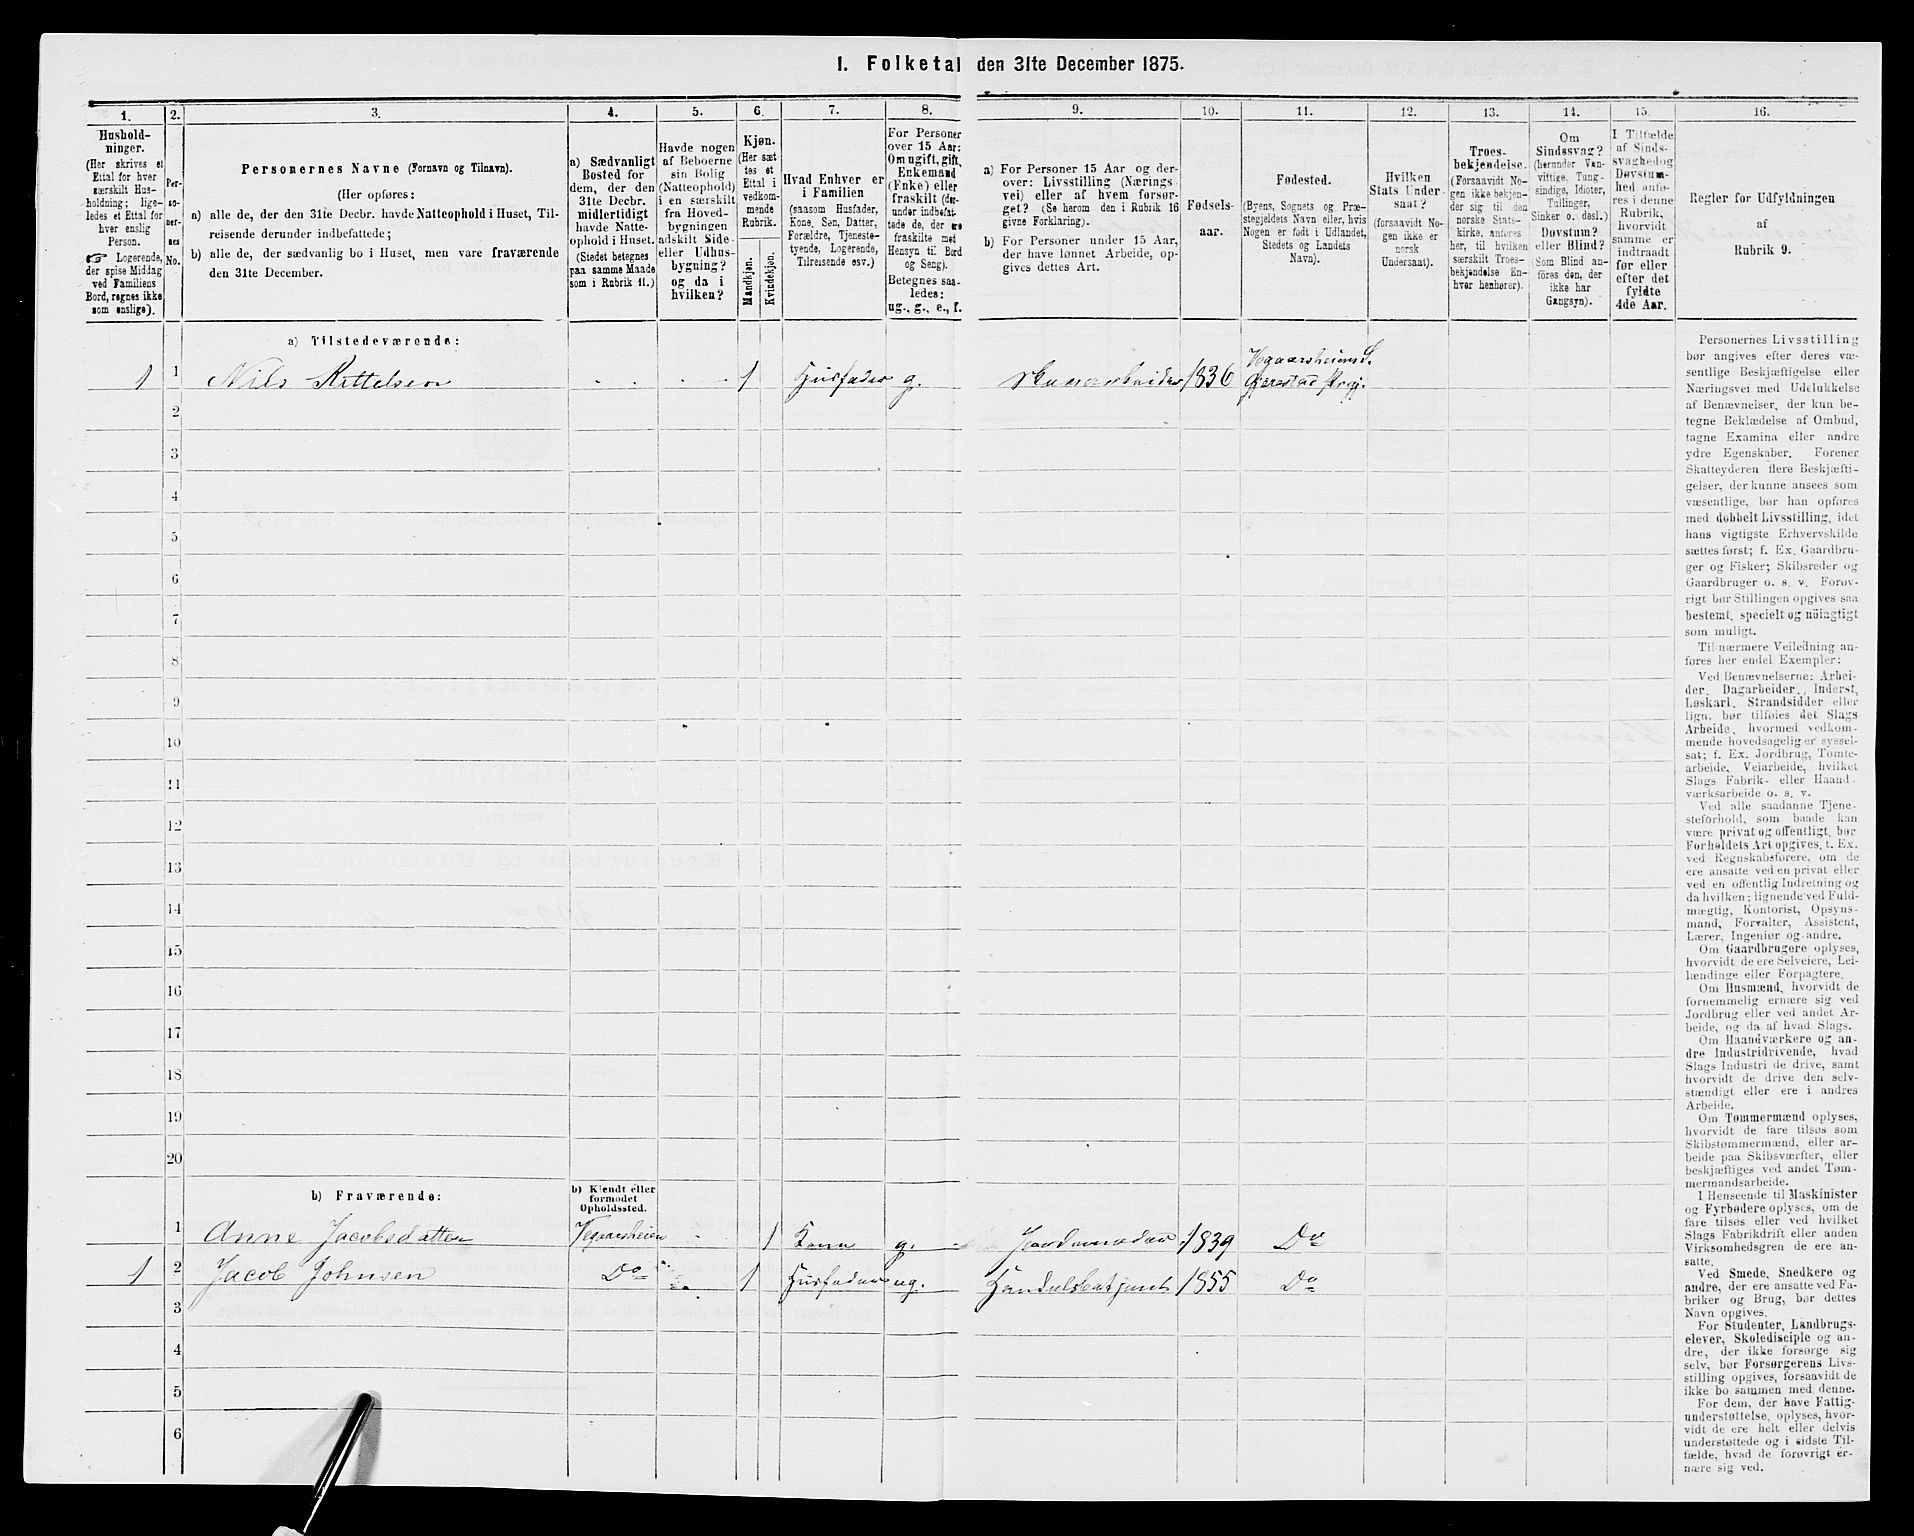 1. Folketal den 31te December 1875.
1.
Hushold-
ninger.
(Her skrives et
Ettal for hver
særskilt Hus-
holdning; lige-
ledes et Ettal for
hver enslig
Person.
☞ Logerende,
der spise Middag
ved Familiens
Bord, regnes ikke
som enslige).
2.
Per-
so-
ner-
nes
No.
3.
Personernes Navne (Fornavn og Tilnavn).
(Her opføres:
a) alle de, der den 31te Decbr. havde Natteophold i Huset, Til-
reisende derunder indbefattede;
b) alle de, der sædvanlig bo i Huset, men vare fraværende
den 31te December.
4.
a) Sædvanligt
Bosted for
dem, der den
31te Decbr.
midlertidigt
havde Natte-
ophold i Huset.
(Stedet betegnes
paa samme Maade
som i Rubrik 11.)
5.
Havde nogen
af Beboerne
sin Bolig
(Natteophold)
i en særskilt
fra Hoved-
bygningen
adskilt Side-
eller Udhus-
bygning?
og da i
hvilken?
6.
Kjøn.
(Her sæt-
tes et
Ettal i
vedkom-
mende
Rubrik.
Mandkjøn.
Kvindekjøn.
7.
Hvad Enhver er
i Familien
(saasom Husfader,
Kone, Søn, Datter,
Forældre, Tjeneste-
tyende, Logerende,
Tilreisende osv.)
8.
For Personer
over 15 Aar:
Om ugift, gift,
Enkemand
(Enke) eller
fraskilt (der-
under indbefat-
tede de, der ere
fraskilte med
Hensyn til Bord
og Seng).
Betegnes saa-
ledes:
ug., g., e., f.
9.
a) For Personer 15 Aar og der-
over: Livsstilling (Nærings-
vei) eller af hvem forsør-
get? (Se herom den i Rubrik 16
givne Forklaring).
b) For Personer under 15 Aar,
der have lønnet Arbeide, op-
gives dettes Art.
10.
Fødsels-
aar.
11.
Fødested.
(Byens, Sognets og Præ-
stegjeldets Navn eller, hvis
Nogen er født i Udlandet,
Stedets og Landets
Navn).
12.
Hvilken
Stats Under-
saat?
(forsaavidt No-
gen ikke er
norsk
Undersaat).
13.
Troes-
bekjendelse.
(Forsaavidt No-
gen ikke bekjen-
der sig til den
norske Stats-
kirke, anføres
her, til hvilken
særskilt Troes-
bekjendelse En-
hver henhører).
14.
Om
Sindssvag?
(herunder Van-
vittige, Tung-
sindige, Idioter,
Tullinger,
Sinker o. desl.)
Døvstum?
eller Blind?
(Som Blind an-
føres den, der
ikke har
Gangsyn).
15.
I Tilfælde
af Sinds-
svaghed og
Døvstum-
hed anfø-
res i denne
Rubrik,
hvorvidt
samme er
indtraadt
før eller
efter det
fyldte
4de Aar.
16.
Regler for Udfyldningen
af
Rubrik 9.
a) Tilstedeværende:
1 1 Nils Kittelsen 1 Husfader g. Skovarbeider 1836 Vegaarsheiens S.
Gjerestad Prgj.
2
3
4
5
6
7
8
9
10
11
12
13
14
15
16
17
18
19
20
b) Fraværende:
b) Kjendt eller
formodet
Opholdssted.
1 Anne Jacobsdatter Vegaarsheien 1 Kone g. 1839 Do
1 2 Jacob Johnsen Do 1 Husfader ug. Handelsbetjent 1855 Do
3
4
5
6
Personernes Livsstilling
bør angives efter deres væ-
sentlige Beskjæftigelse eller
Næringsvei med Udelukkelse
af Benævnelser, der kun be-
tegne Beklædelse af Ombud,
tagne Examina eller andre
ydre Egenskaber. Forener
Skatteyderen flere Beskjæfti-
gelser, der kunne ansees som
væsentlige, bør han opføres
med dobbelt Livsstilling, idet
hans vigtigste Erhvervskilde
sættes først; f. Ex. Gaardbru-
ger og Fisker; Skibsreder og
Gaardbruger o. s. v. Forøv-
rigt bør Stillingen opgives saa
bestemt, specielt og nöiagtigt
som muligt.
Til nærmere Veiledning an-
føres her endel Exempler:
Ved Benævnelserne: Arbei-
der, Dagarbeider, Inderst,
Løskarl, Strandsidder eller
lign. bør tilføies det Slags
Arbeide, hvormed vedkom-
mende hovedsagelig er syssel-
sat; f. Ex. Jordbrug, Tomte-
arbeide, Veiarbeide, hvilket
Slags Fabrik- eller Haand-
værksarbeide o. s. v.
Ved alle saadanne Tjene-
steforhold, som baade kan
være privat og offentligt, bør
Forholdets Art opgives, t. Ex.
ved Regnskabsførere, om de
ere ansatte ved en privat eller
ved en offentlig Indretning og
da hvilken; lignende ved Fuld-
mægtig, Kontorist, Opsyns-
mand, Forvalter, Assistent,
Lærer, Ingeniør og andre.
Om Gaardbrugere oplyses,
hvorvidt de ere Selveiere, Lei-
lændinge eller Forpagtere.
Om Husmænd, hvorvidt de
fornemmelig ernære sig ved
Jordbrug eller ved andet Ar-
beide, og da af hvad Slags.
Om Haandværkere og an-
dre Industridrivende, hvad
Slags Industri de drive, samt
hvorvidt de drive den selv-
stændigt eller ere i andres
Arbeide.
Om Tømmermænd oplyses,
hvorvidt de fare tilsøs som
Skibstømmermænd, eller ar-
beide paa Skibsværfter, eller
beskjæftiges ved andet Tøm-
mermandsarbeide.
I Henseende til Maskinister
og Fyrbødere oplyses, om de
fare tilsøs eller ved hvilket
Slags Fabrikdrift eller anden
Virksomhedsgren de ere an-
satte.
Ved Smede, Snedkere og
andre, der ere ansatte ved Fa-
briker og Brug, bør dettes
Navn opgives.
For Studenter, Landbrugs-
elever, Skoledisciple og an-
dre, der ikke forsørge sig
selv, bør Forsørgerens Livs-
stilling opgives, forsaavidt de
ikke bo sammen med denne.
For dem, der have Fattig-
understøttelse, oplyses, hvor-
vidt de ere helt eller delvis
understøttede og i sidste Til-
fælde, hvad de forøvrigt er-
nære sig ved.